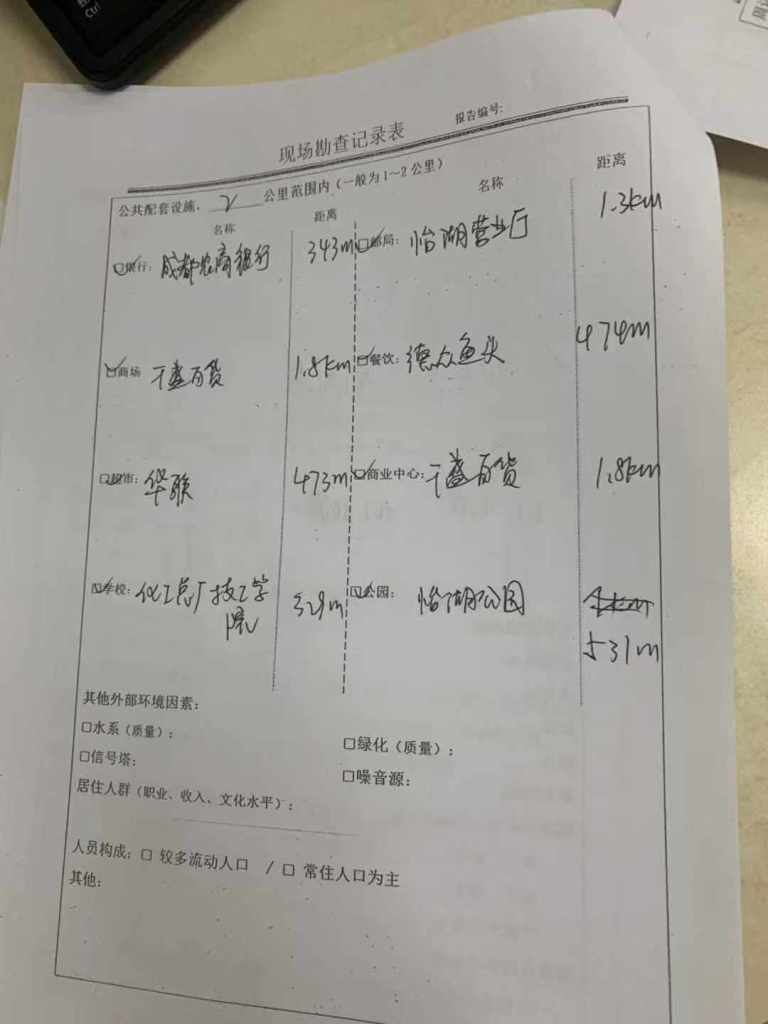 Ctrl
现场勘查记录表
报告编号:
公共配套设施, 2 公里范围内(一般为1~2公里)
名称 距离 名称 距离
☑银行: 成都农商银行 343m ☑邮局: 怡湖营业厅 1.3km
☑商场 千盛百货 1.8km ☑餐饮: 德众鱼头 474m
☑超市: 华联 473m ☑商业中心: 千盛百货 1.8km
☑学校: 化工总厂技工学院 529m ☑公园: 怡湖公园
531m
其他外部环境因素:
□水系(质量): □绿化(质量):
□信号塔: □噪音源:
居住人群(职业、收入、文化水平):
人员构成: □ 较多流动人口 / □ 常住人口为主
其他: